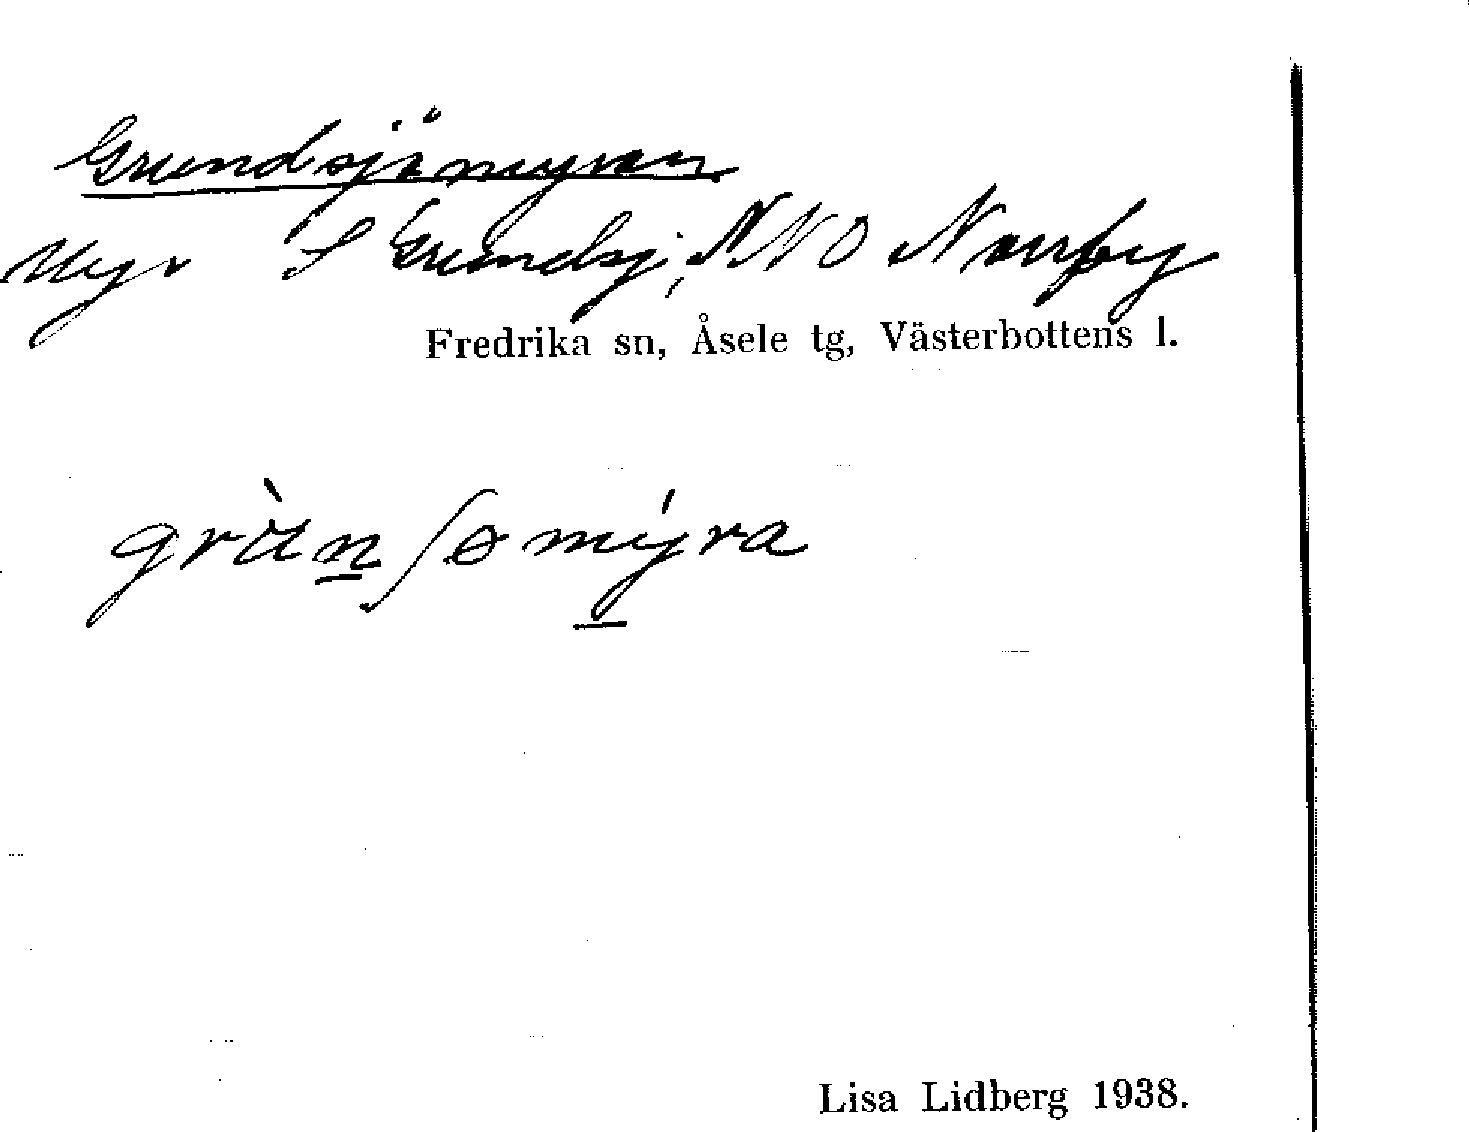 Grundsjömyran
Myr S Grundsj, NNO Norrby
Fredrika sn, Åsele tg, Västerbottens l.
grùn̲ʃømý̲ra
Lisa Lidberg 1938.